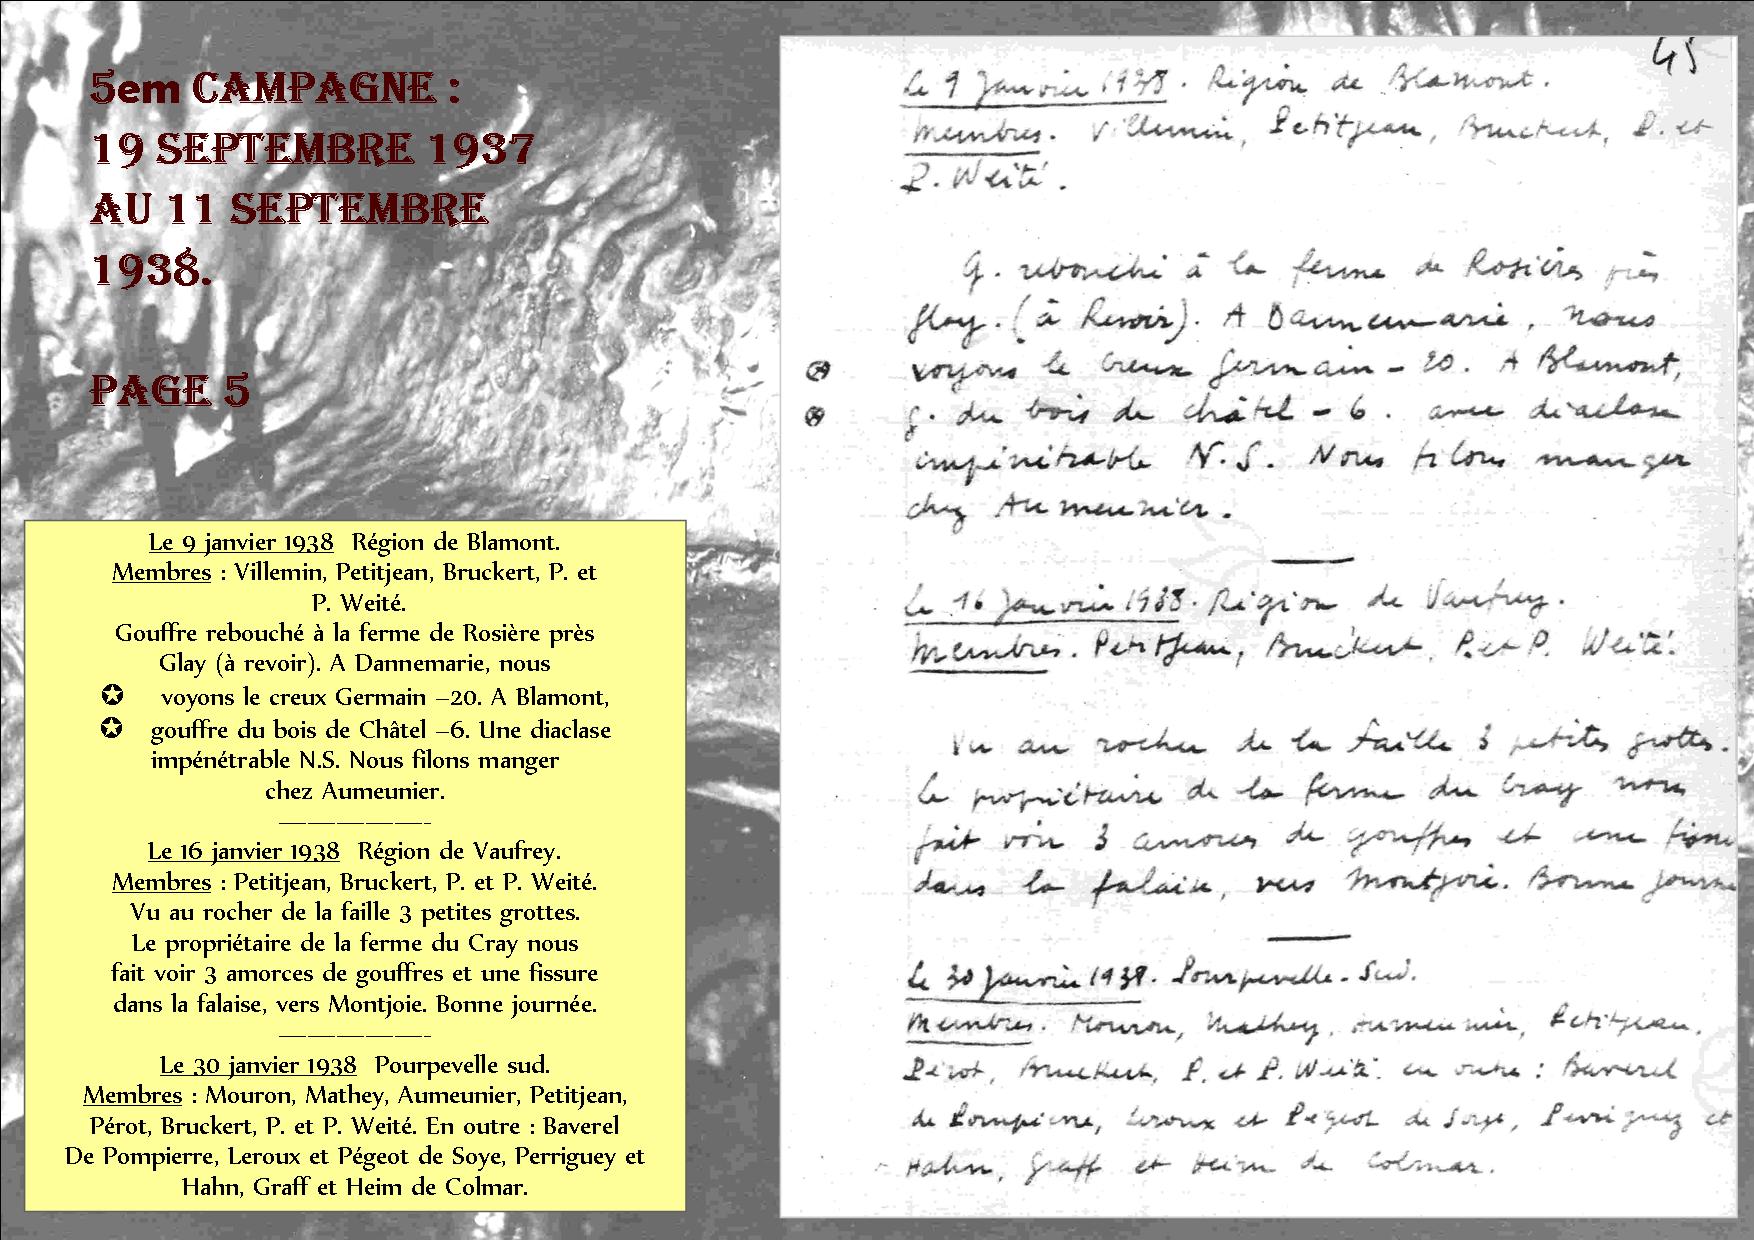 5em CAMPAGNE :
19 SEPTEMBRE 1937
AU 11 SEPTEMBRE
1938.
PAGE 5
Le 9 janvier 1938 Région de Blamont.
Membres : Villemin, Petitjean, Bruckert, P. et
P. Weité.
Gouffre rebouché à la ferme de Rosière près
Glay (à revoir). A Dannemarie, nous
✪ voyons le creux Germain –20. A Blamont,
✪ gouffre du bois de Châtel –6. Une diaclase
impénétrable N.S. Nous filons manger
chez Aumeunier.
——————————-
Le 16 janvier 1938 Région de Vaufrey.
Membres : Petitjean, Bruckert, P. et P. Weité.
Vu au rocher de la faille 3 petites grottes.
Le propriétaire de la ferme du Cray nous
fait voir 3 amorces de gouffres et une fissure
dans la falaise, vers Montjoie. Bonne journée.
——————————-
Le 30 janvier 1938 Pourpevelle sud.
Membres : Mouron, Mathey, Aumeunier, Petitjean,
Pérot, Bruckert, P. et P. Weité. En outre : Baverel
De Pompierre, Leroux et Pégeot de Soye, Perriguey et
Hahn, Graff et Heim de Colmar.
45
Le 9 Janvier 1938. Région de Blamont.
Membres. Villemin, Petitjean, Bruckert, P. et
P. Weité.
G. rebouché à la ferme de Rosières près
Glay. (à Revoir). A Dannemarie, nous
voyons le creux Germain – 20. A Blamont,
g. du bois de châtel – 6. avec diaclase
impénétrable N.S. Nous filons manger
chez Aumeunier.
Le 16 Janvier 1938. Région de Vaufrey.
Membres. Petitjean, Bruckert, P. et P. Weité.
Vu au rocher de la faille 3 petites grottes.
Le propriétaire de la ferme du Cray nous
fait voir 3 amorces de gouffres et une fissu
dans la falaise, vers Montjoie. Bonne journé
Le 30 Janvier 1938. Pourpevelle-Sud.
Membres. Mouron, Mathey, Aumeunier, Petitjean,
Pérot, Bruckert, P. et P. Weité. en outre : Baverel
de Pompierre, Leroux et Pégeot de Soye, Perriguey et
Hahn, Graff et Heim de Colmar.